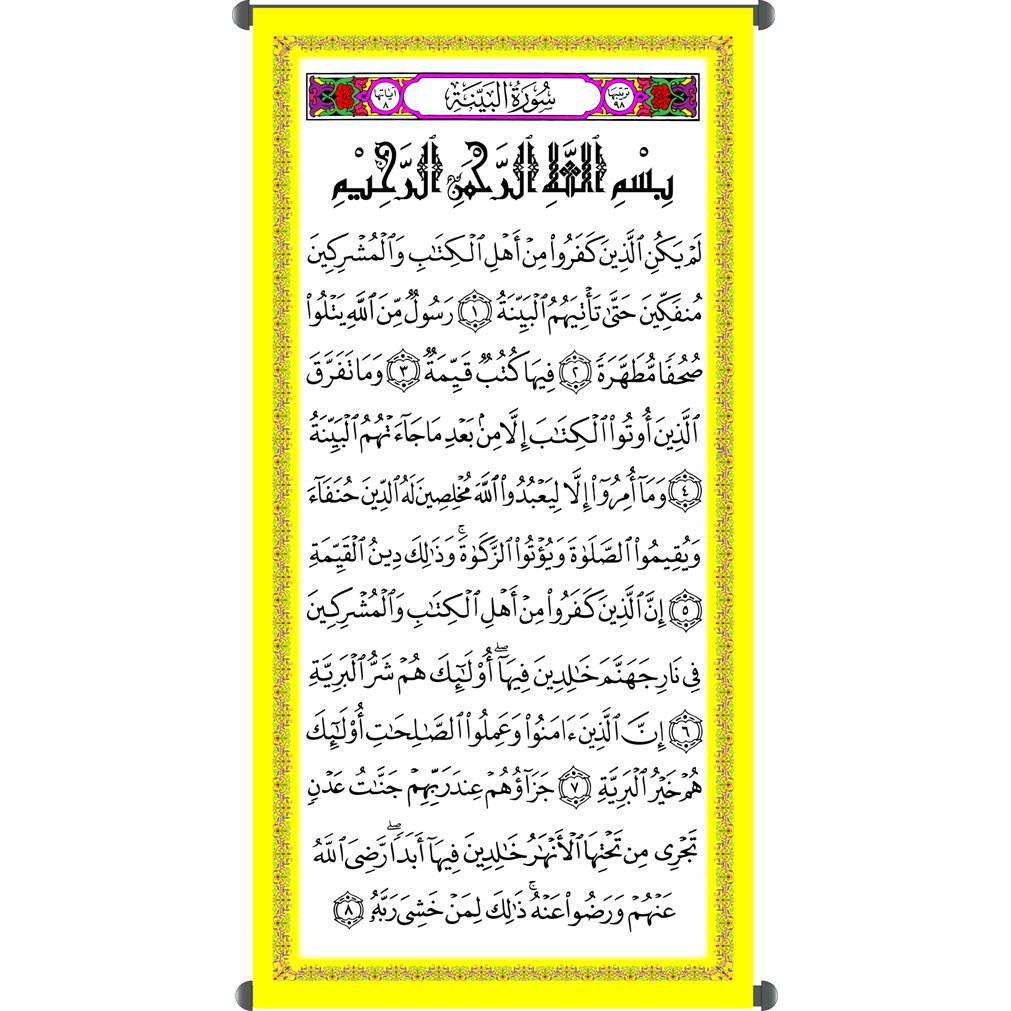 ترتيبها ٩٨ سُورَةُ الْبَيِّنَةِ آياتها ٨
بِسْمِ اللَّهِ الرَّحْمَٰنِ الرَّحِيمِ
لَمْ يَكُنِ ٱلَّذِينَ كَفَرُوا۟ مِنْ أَهْلِ ٱلْكِتَٰبِ وَٱلْمُشْرِكِينَ
مُنفَكِّينَ حَتَّىٰ تَأْتِيَهُمُ ٱلْبَيِّنَةُ ١ رَسُولٌ مِّنَ ٱللَّهِ يَتْلُوا۟
صُحُفًا مُّطَهَّرَةً ٢ فِيهَا كُتُبٌ قَيِّمَةٌ ٣ وَمَا تَفَرَّقَ
ٱلَّذِينَ أُوتُوا۟ ٱلْكِتَٰبَ إِلَّا مِنۢ بَعْدِ مَا جَآءَتْهُمُ ٱلْبَيِّنَةُ
٤ وَمَآ أُمِرُوٓا۟ إِلَّا لِيَعْبُدُوا۟ ٱللَّهَ مُخْلِصِينَ لَهُ ٱلدِّينَ حُنَفَآءَ
وَيُقِيمُوا۟ ٱلصَّلَوٰةَ وَيُؤْتُوا۟ ٱلزَّكَوٰةَ ۚ وَذَٰلِكَ دِينُ ٱلْقَيِّمَةِ
٥ إِنَّ ٱلَّذِينَ كَفَرُوا۟ مِنْ أَهْلِ ٱلْكِتَٰبِ وَٱلْمُشْرِكِينَ
فِى نَارِ جَهَنَّمَ خَٰلِدِينَ فِيهَآ ۖ أُو۟لَٰٓئِكَ هُمْ شَرُّ ٱلْبَرِيَّةِ
٦ إِنَّ ٱلَّذِينَ ءَامَنُوا۟ وَعَمِلُوا۟ ٱلصَّٰلِحَٰتِ أُو۟لَٰٓئِكَ
هُمْ خَيْرُ ٱلْبَرِيَّةِ ٧ جَزَآؤُهُمْ عِندَ رَبِّهِمْ جَنَّٰتُ عَدْنٍ
تَجْرِى مِن تَحْتِهَا ٱلْأَنْهَٰرُ خَٰلِدِينَ فِيهَآ أَبَدًا ۖ رَّضِىَ ٱللَّهُ
عَنْهُمْ وَرَضُوا۟ عَنْهُ ۚ ذَٰلِكَ لِمَنْ خَشِىَ رَبَّهُۥ ٨